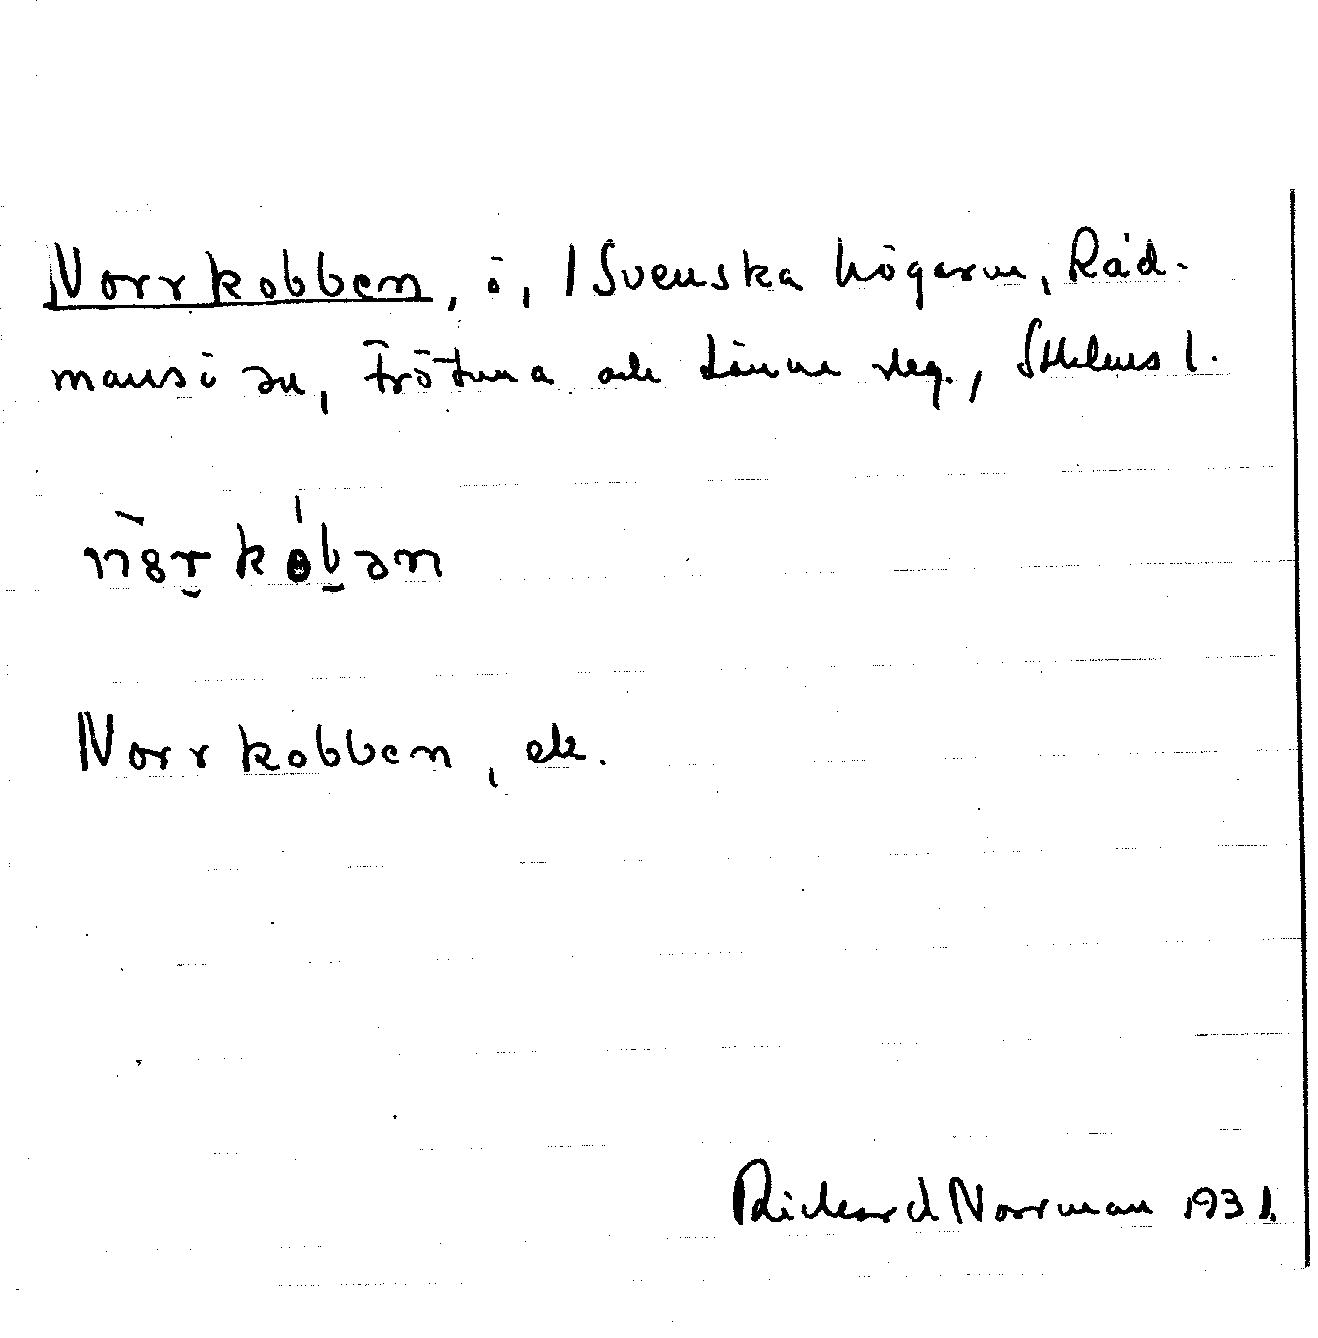 Norrkobben, ö, i Svenska högarna, Råd-
mansö sn, Frötuna och Länna skg., Sthlms l.
nȯrkobən
Norrkobben, ek.
Rickard Norrman 1931.